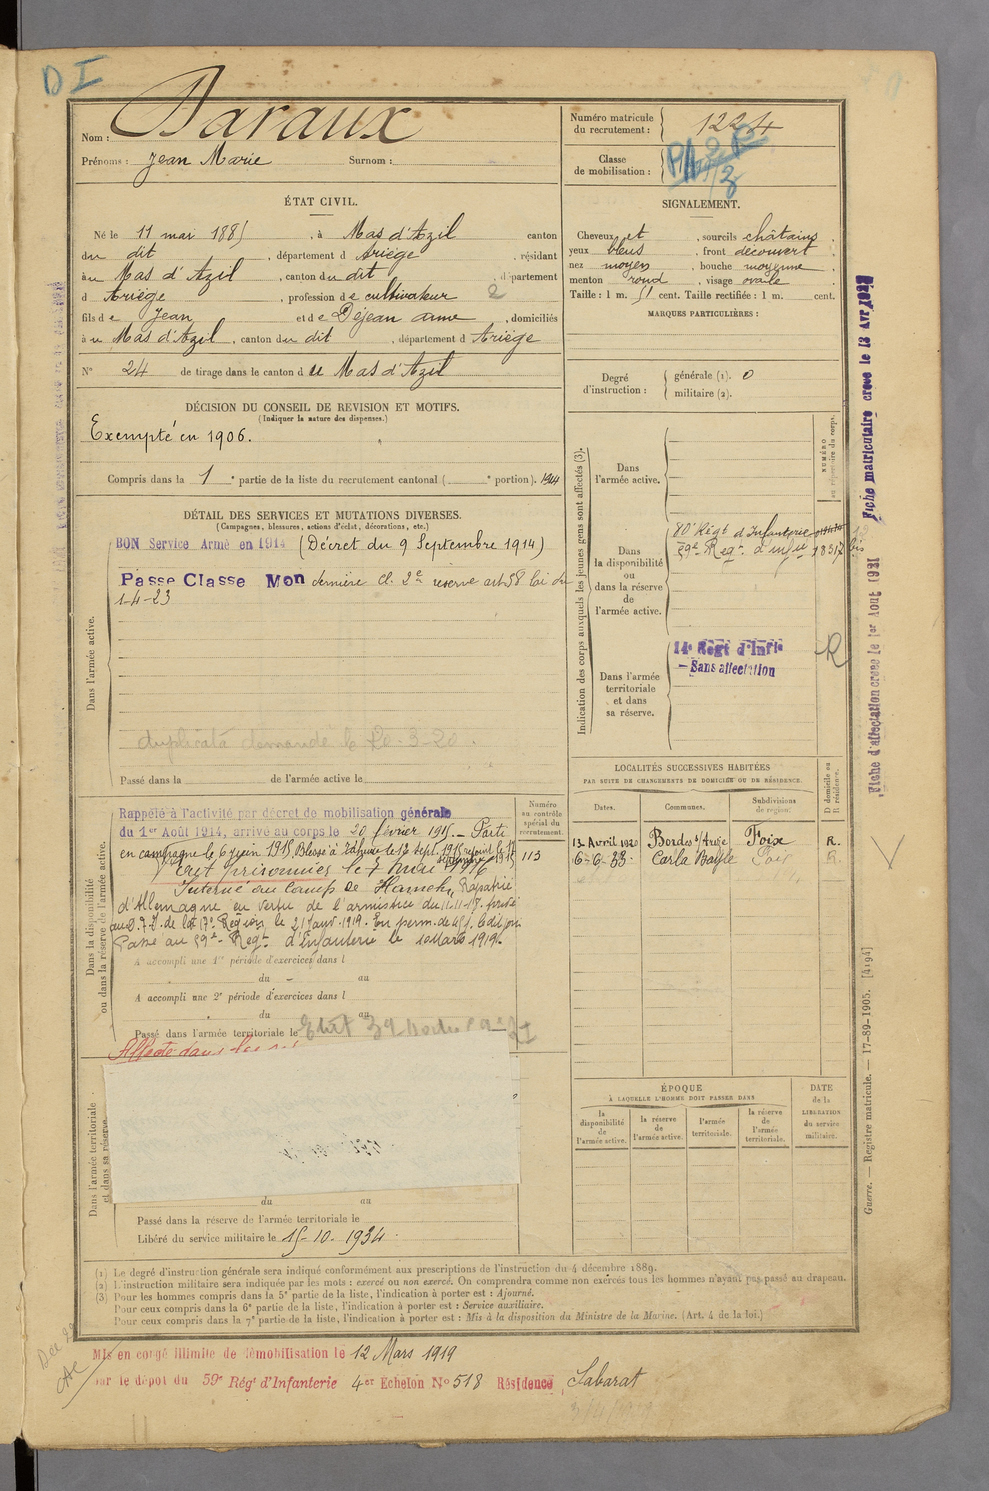 D I
Nom : Daraux
Prénoms : Jean Marie Surnom :
Numéro matricule du recrutement : 1224
Classe de mobilisation :
ÉTAT CIVIL.
Né le 11 mai 1885, à Mas d'Azil canton
du dit, département d Ariège, résidant
à u Mas d'Azil, canton du dit, département
d Ariège, profession de cultivateur 2
fils de Jean et de Dejean anne, domiciliés
à u Mas d'Azil, canton du dit, département d Ariège
N° 24 de tirage dans le canton d u Mas d'Azil
SIGNALEMENT.
Cheveux et, sourcils châtains,
yeux bleus, front découvert,
nez moyen, bouche moyenne,
menton rond, visage ovale.
Taille : 1 m. 51 cent. Taille rectifiée : 1 m. cent.
MARQUES PARTICULIÈRES :
Degré d'instruction : générale (1). 0
militaire (2).
DÉCISION DU CONSEIL DE REVISION ET MOTIFS.
(Indiquer la nature des dispenses.)
Exempté en 1906.
Compris dans la 1 e partie de la liste du recrutement cantonal ( e portion). 1914
DÉTAIL DES SERVICES ET MUTATIONS DIVERSES.
(Campagnes, blessures, actions d'éclat, décorations, etc.)
Dans l'armée active.
BON Service Armé en 1914 (Décret du 9 Septembre 1914)
Passe Classe Mon dernière cl. 2e réserve art 58 loi du
1-4-23
duplicata demandé le 20-3-20.
Passé dans la de l'armée active le
Indication des corps auxquels les jeunes gens sont affectés (3).
NUMÉRO au répertoire du corps.
Dans l'armée active.
Dans la disponibilité ou dans la réserve de l'armée active.
80e Régt d'Infanterie
59e Regt d'infie 18317 bis
Dans l'armée territoriale et dans sa réserve.
14e Régt d'Infie
— Sans affectation
R
LOCALITÉS SUCCESSIVES HABITÉES
PAR SUITE DE CHANGEMENTS DE DOMICILE OU DE RÉSIDENCE.
Dates. Communes. Subdivisions de région. D domicile ou R résidence.
13 Avril 1920 Bordes s/Arize Foix R.
6-6-33 Carla Bayle Foix R.
Dans la disponibilité ou dans la réserve de l'armée active.
Numéro au contrôle spécial du recrutement.
113
Rappelé à l'activité par décret de mobilisation générale
du 1er Août 1914, arrivé au corps le 20 février 1915. — Parti
en campagne le 6 juin 1915,
Interné au camp de Hameln, Rapatrié
d'Allemagne en vertu de l'armistice du 11-11-18.
Passé au 59e Regt d'Infanterie le 10 Mars 1919.
A accompli une 1re période d'exercices dans l
du au
A accompli une 2e période d'exercices dans l
du au
Passé dans l'armée territoriale le
Affecté dans
Dans l'armée territoriale et dans sa réserve.
du au
Passé dans la réserve de l'armée territoriale le
Libéré du service militaire le 15-10-1934.
ÉPOQUE
À LAQUELLE L'HOMME DOIT PASSER DANS
la disponibilité de l'armée active.
la réserve de l'armée active.
l'armée territoriale.
la réserve de l'armée territoriale.
DATE de la LIBÉRATION du service militaire.
(1) Le degré d'instruction générale sera indiqué conformément aux prescriptions de l'instruction du 4 décembre 1889.
(2) L'instruction militaire sera indiquée par les mots : exercé ou non exercé. On comprendra comme non exercés tous les hommes n'ayant pas passé au drapeau.
(3) Pour les hommes compris dans la 5e partie de la liste, l'indication à porter est : Ajourné.
Pour ceux compris dans la 6e partie de la liste, l'indication à porter est : Service auxiliaire.
Pour ceux compris dans la 7e partie de la liste, l'indication à porter est : Mis à la disposition du Ministre de la Marine. (Art. 4 de la loi.)
Mis en congé illimité de démobilisation le 12 Mars 1919
par le dépôt du 59e Régt d'Infanterie 4er Echelon N° 518 Résidence Sabarat
Fiche matriculaire créée le 13 Avr
Fiche d'affectation créée le 1er Aout 1921
Guerre. — Registre matricule. — 17-89-1905. [4194]